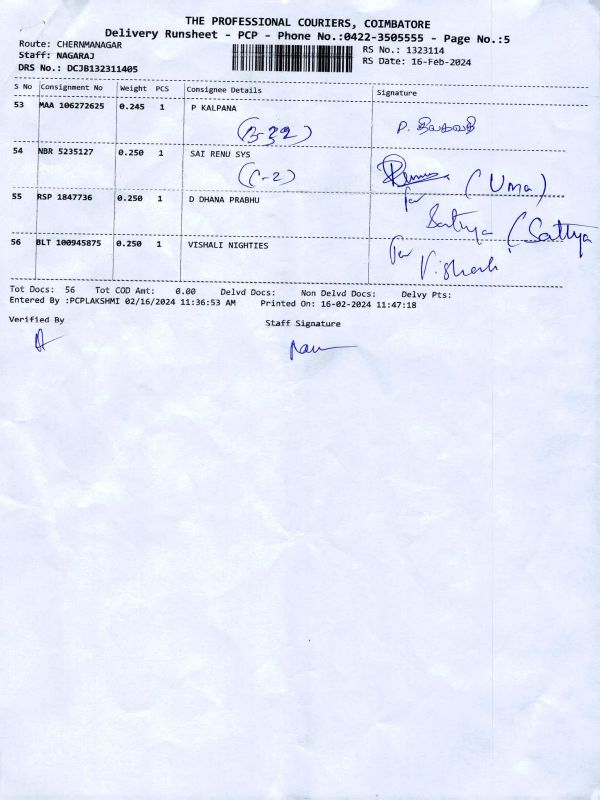 THE PROFESSIONAL COURIERS, COIMBATORE
Delivery Runsheet - PCP - Phone No.:0422-3505555 - Page No.:5
Route: CHERNMANAGAR
RS No.: 1323114
Staff: NAGARAJ
RS Date: 16-Feb-2024
DRS No.: DCJB132311405
S No Consignment No Weight PCS Consignee Details Signature
53 MAA 106272625 0.245 1 P KALPANA
(B-22) P.
54 NBR 5235127 0.250 1 SAI RENU SYS
(C-2) (Uma)
55 RSP 1847736 0.250 1 D DHANA PRABHU
for Sathya (Sathya
56 BLT 100945875 0.250 1 VISHALI NIGHTIES
for Vishali
Tot Docs: 56 Tot COD Amt: 0.00 Delvd Docs: Non Delvd Docs: Delvy Pts:
Entered By :PCPLAKSHMI 02/16/2024 11:36:53 AM Printed On: 16-02-2024 11:47:18
Verified By
Staff Signature